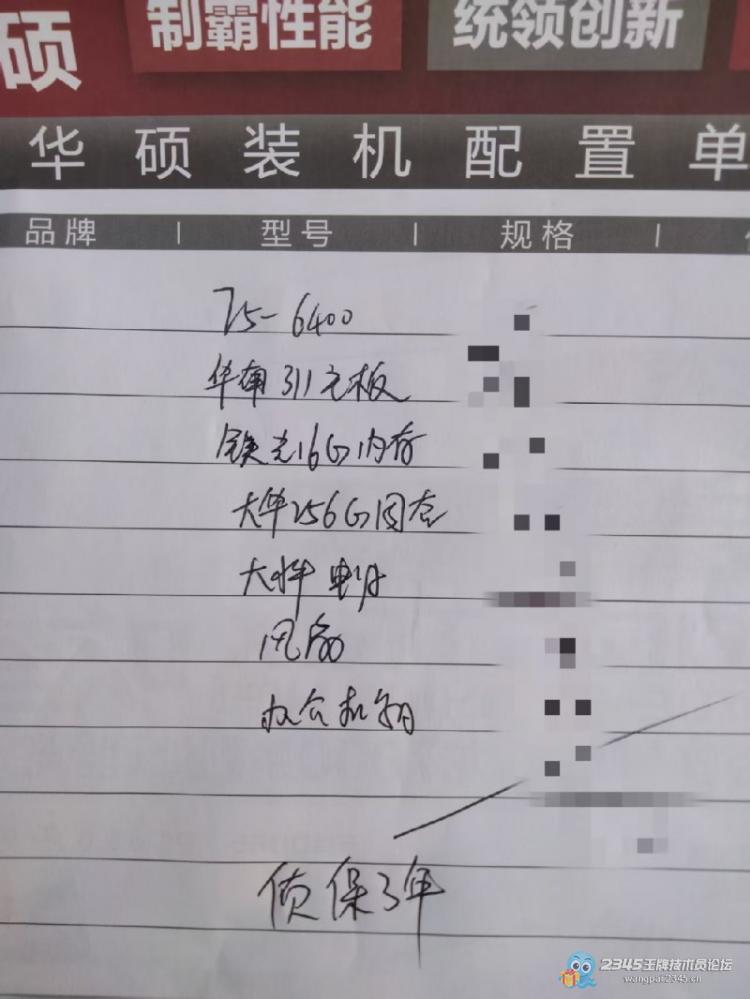 硕 制霸性能 统领创新
华硕装机配置单
品牌 | 型号 | 规格 |
I5-6400
华南311主板
铁壳16G内存
大华256G固态
大水牛 电源
风扇
办公机箱
质保3年
2345王牌技术员论坛
wangpai.2345.cn